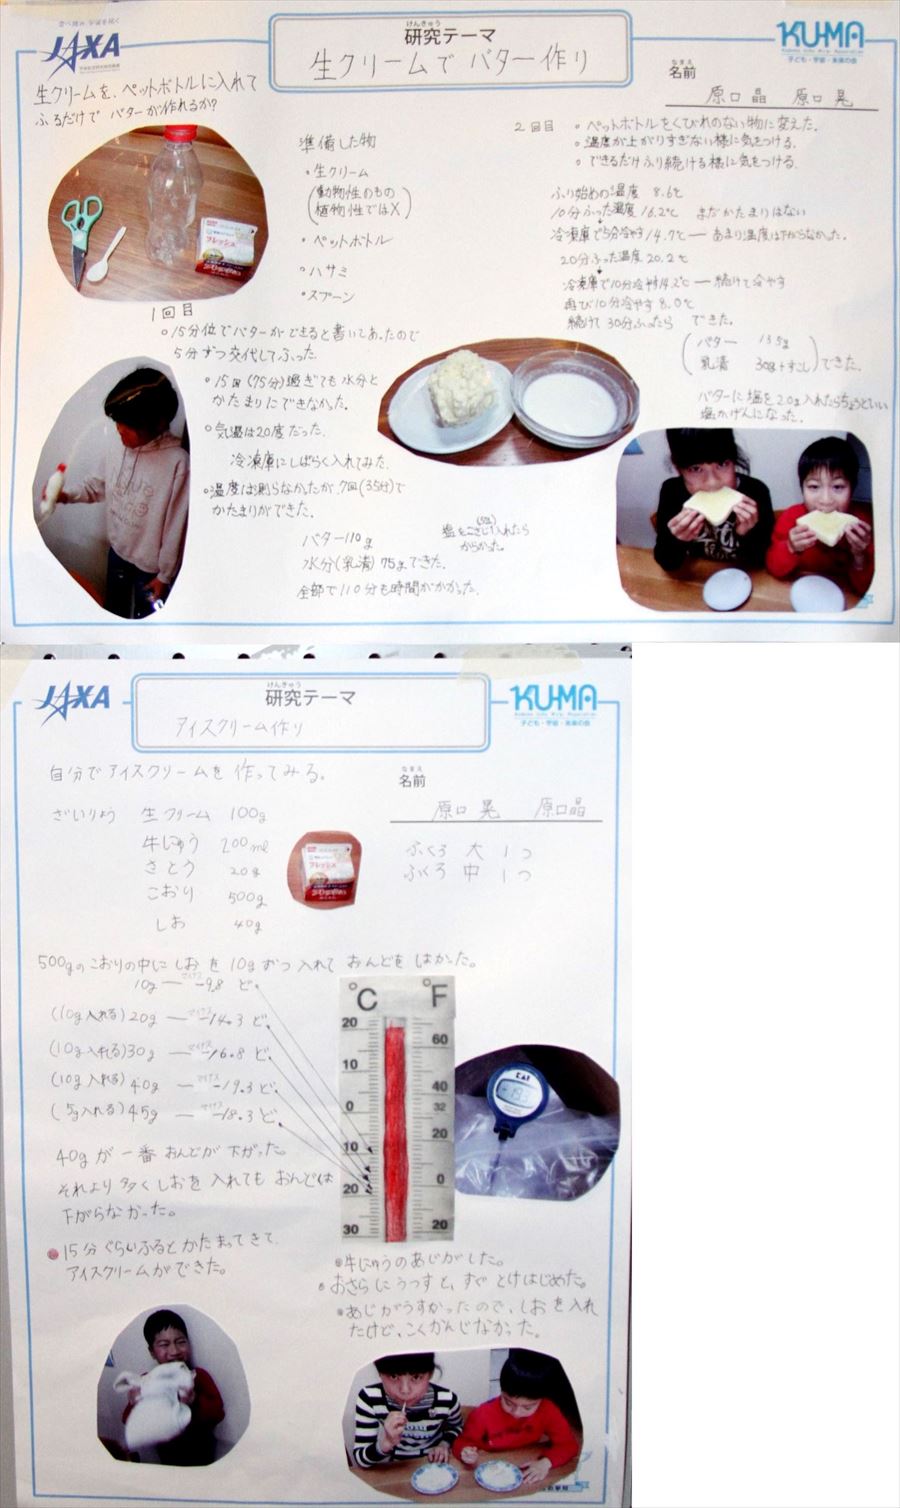 食べ物と宇宙を拓く
JAXA
けんきゅう
研究テーマ
生クリームで バター作り
KUMA
子ども・宇宙・未来の会
なまえ
名前
原口 晶 原口 晃
生クリームを、ペットボトルに入れて
ふるだけで バターが作れるか?
準備した物
・生クリーム
(動物性のもの
植物性ではX)
・ペットボトル
・ハサミ
・スプーン
フレッシュ
1回目
○15分位でバターができると書いてあったので
5分ずつ交代してふった。
○15回(75分)過ぎても水分と
かたまりにできなかった。
○気温は20度だった。
冷凍庫にしばらく入れてみた。
○温度は測らなかったが、7回(35分)で
かたまりができた。
バター110g
水分(乳清)75gできた。
全部で110分も時間がかかった。
入れたら
からかった。
2回目 ○ペットボトルをくびれのない物に変えた。
○温度が上がりすぎない様に気をつける。
○できるだけふり続ける様に気をつける。
ふり始めの温度 8.6℃
10分ふった温度 16.2℃ まだかたまりはない
冷凍庫で5分冷やす 14.7℃ ― あまり温度は下がらなかった。
20分ふった温度 20.2℃
冷凍庫で10分冷やす14.2℃ ― 続けて冷やす
再び10分冷やす 8.0℃
続けて 30分ふったら できた。
(バター 135g
乳清 30g+すこし)できた。
バターに塩を2.0g入れたらちょうどいい
塩かげんになった。
JAXA
けんきゅう
研究テーマ
アイスクリーム作り
KUMA
子ども・宇宙・未来の会
自分でアイスクリームを 作ってみる。
なまえ
名前
原口 晃 原口晶
ざいりょう 生クリーム 100g
牛にゅう 200ml
さとう 20g
こおり 500g
しお 40g
フレッシュ
ふくろ 大 1つ
ふくろ 中 1つ
500gのこおりの中に しお を 10g ずつ 入れて おんどを はかった。
10g ― マイナス -9.8 ど。
(10g入れる)20g ― マイナス -14.3 ど。
(10g入れる)30g ― マイナス -16.8 ど。
(10g入れる)40g ― マイナス -19.3 ど。
(5g入れる)45g ― マイナス -18.3 ど。
°C °F
20
10
0
10
20
30
60
40
32
20
0
20
40g が 一番 おんどが 下がった。
それより 多く しおを 入れても おんどは
下がらなかった。
●15分ぐらいふるとかたまってきて、
アイスクリームができた。
●牛にゅうのあじがした。
●おさらにうつすと、すぐ とけはじめた。
●あじがうすかったので、しおを入れ
たけど、こくかんじなかった。